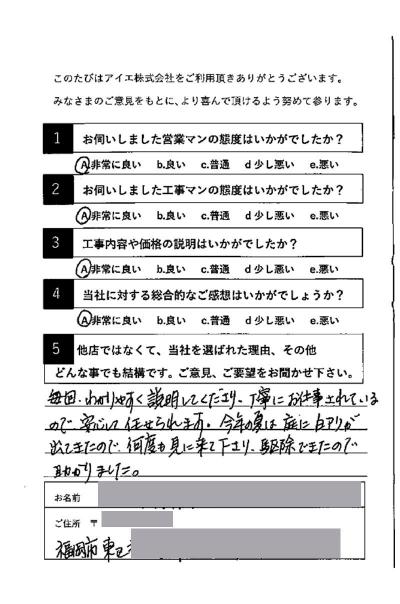 このたびはアイエ株式会社をご利用頂きありがとうございます。
みなさまのご意見をもとに、より喜んで頂けるよう努めて参ります。
1 お伺いしました営業マンの態度はいかがでしたか？
A非常に良い b.良い c.普通 d少し悪い e.悪い
2 お伺いしました工事マンの態度はいかがでしたか？
A非常に良い b.良い c.普通 d少し悪い e.悪い
3 工事内容や価格の説明はいかがでしたか？
A非常に良い b.良い c.普通 d少し悪い e.悪い
4 当社に対する総合的なご感想はいかがでしょうか？
A非常に良い b.良い c.普通 d少し悪い e.悪い
5 他店ではなくて、当社を選ばれた理由、その他
どんな事でも結構です。ご意見、ご要望をお聞かせ下さい。
毎回、わかりやすく説明してくださり、丁寧にお仕事されている
ので、安心して任せられます。今年の夏は庭に白アリが
出てきたので、何度も見に来て下さり、駆除できたので
助かりました。
お名前
ご住所 〒
福岡市東